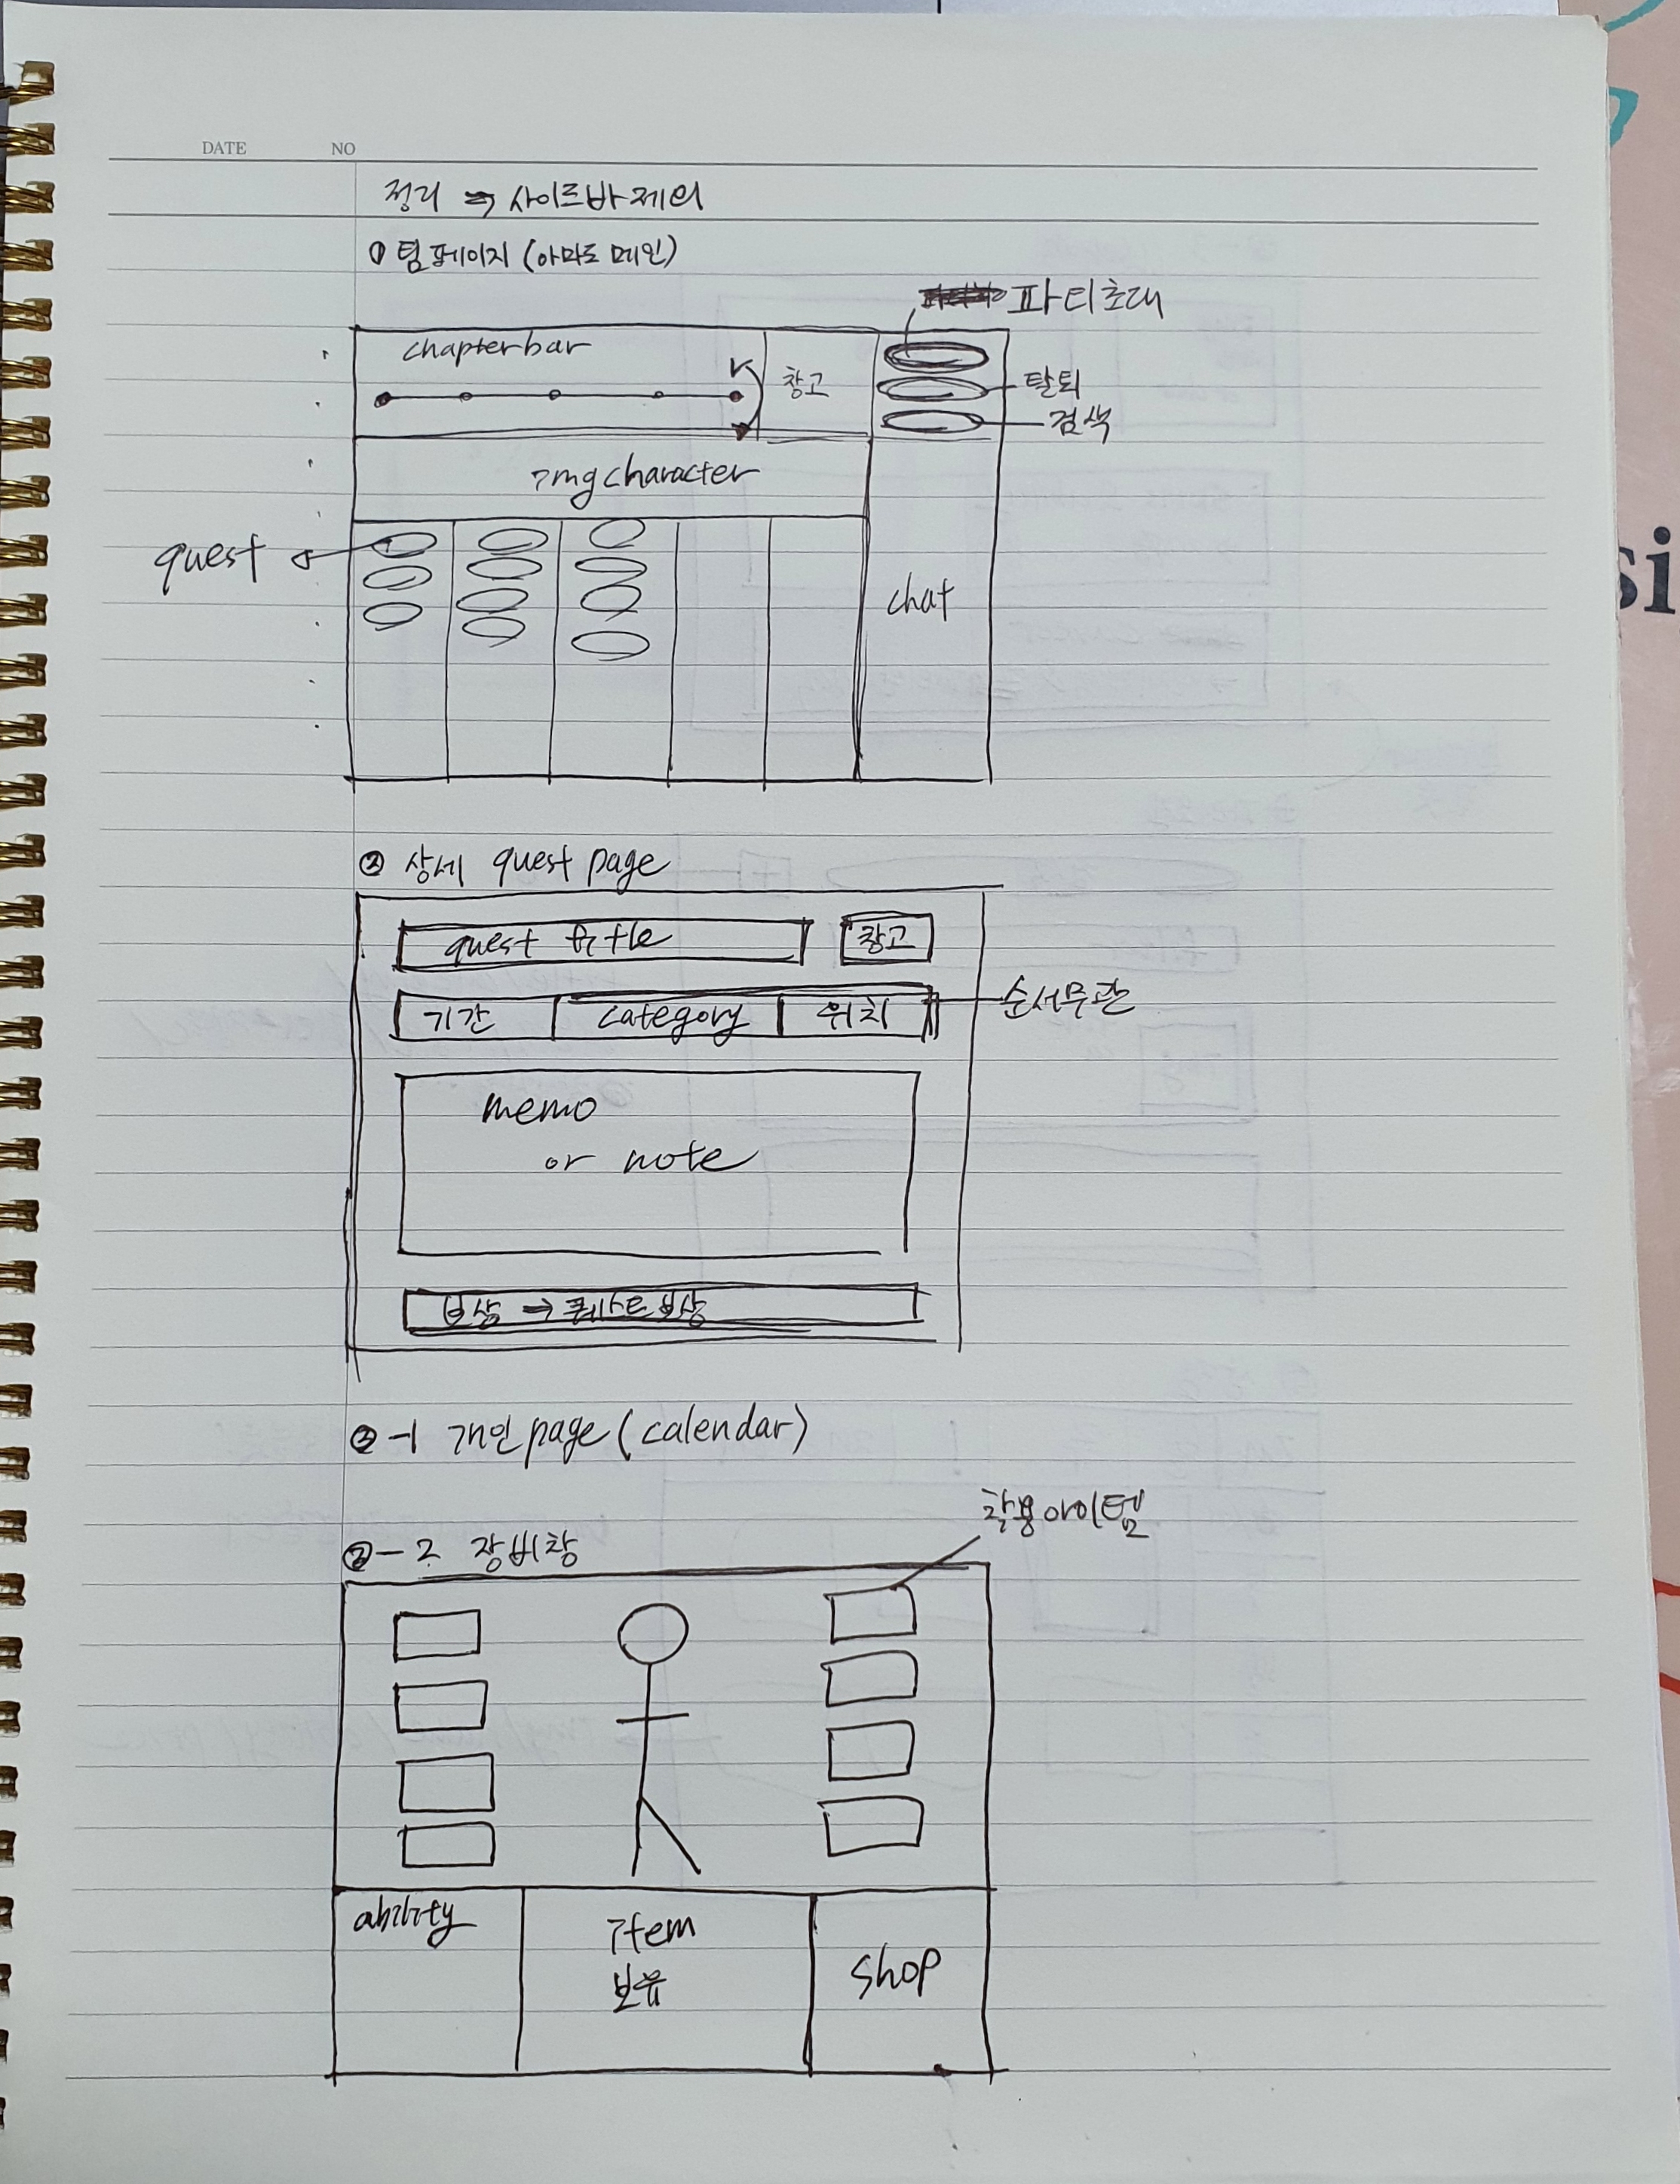 DATE NO
정리 → 사이드바 제외
① 팀페이지 (아마도 메인)
파티초대
chapterbar
창고
탈퇴
검색
img character
quest
chat
si
② 상세 quest page
quest title
창고
기간
category
위치
순서무관
memo
or note
보상 → 퀘스트 보상
③-1 개인page (calendar)
착용아이템
②-2 장비창
ability
item
보유
shop